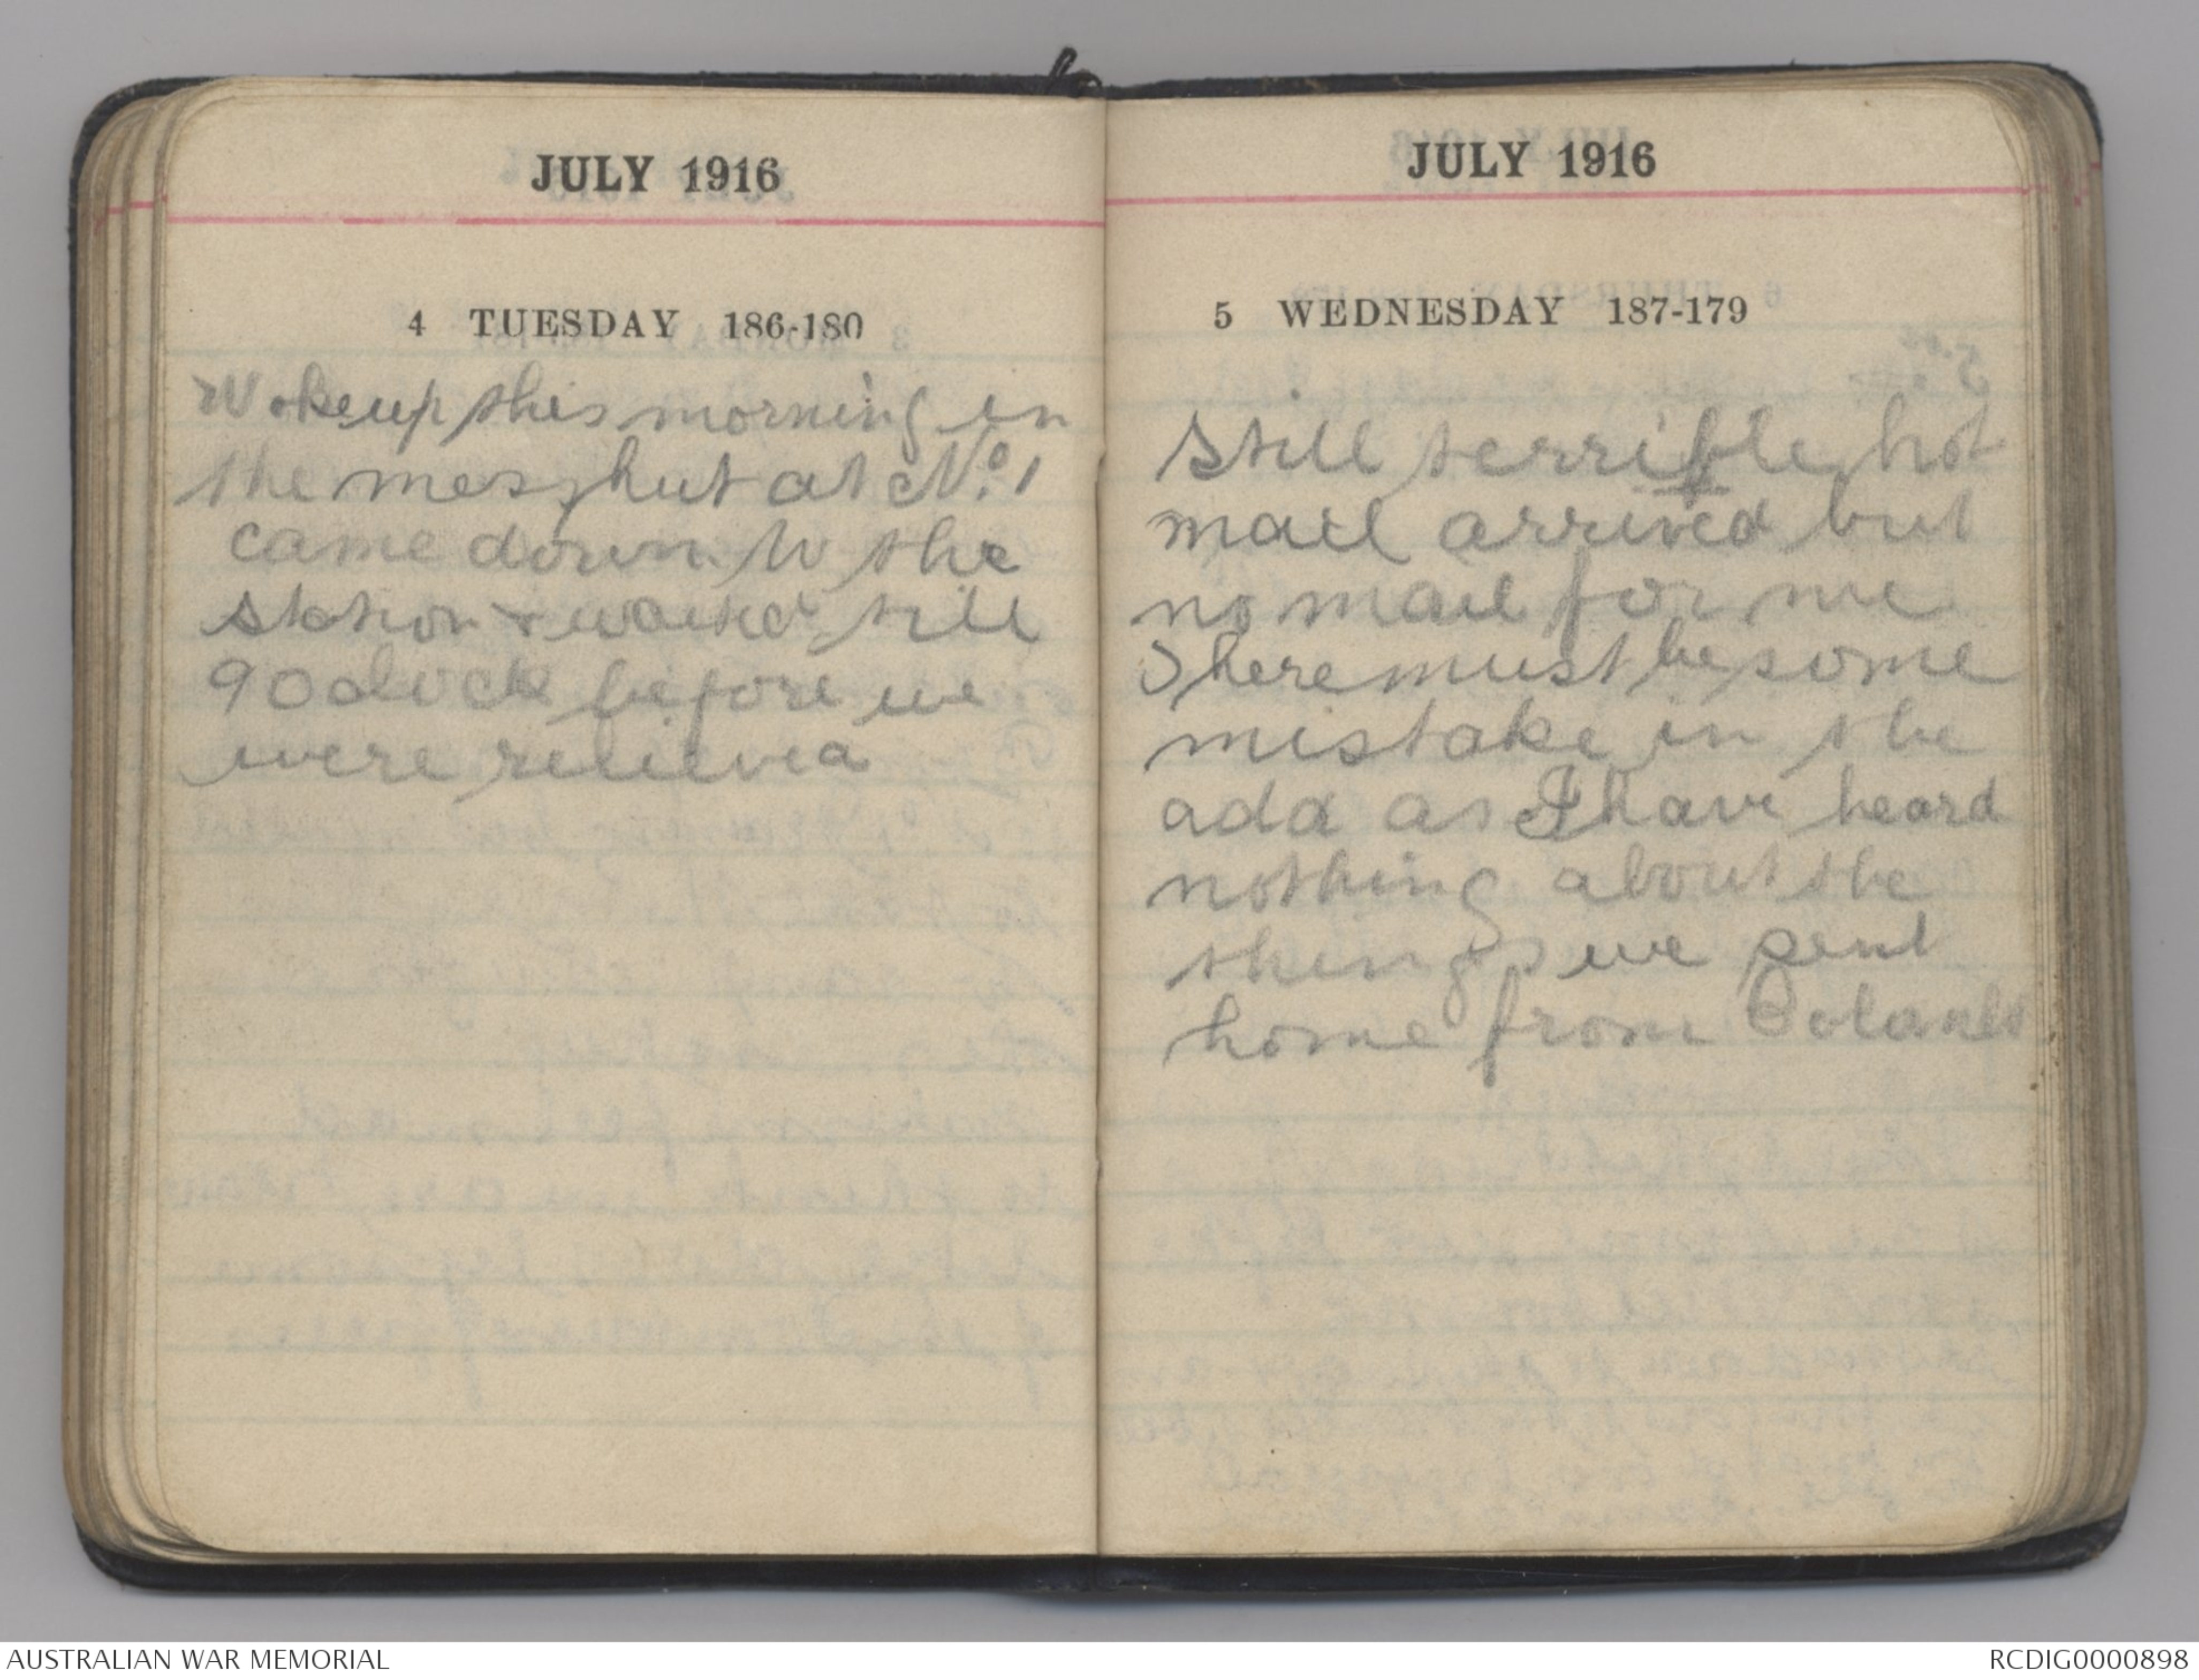 JULY 1916
4 TUESDAY 186-180
Woke up this morning in
the mess hut at No. 1
came down to the
station & waited till
9 Oclock before we
were relieved
JULY 1916
5 WEDNESDAY 187-179
Still terrible hot
mail arrived but
no mail for me
There must be some
mistake in the
add as I have heard
nothing about the
things we sent
home from
AUSTRALIAN WAR MEMORIAL
RCDIG0000898